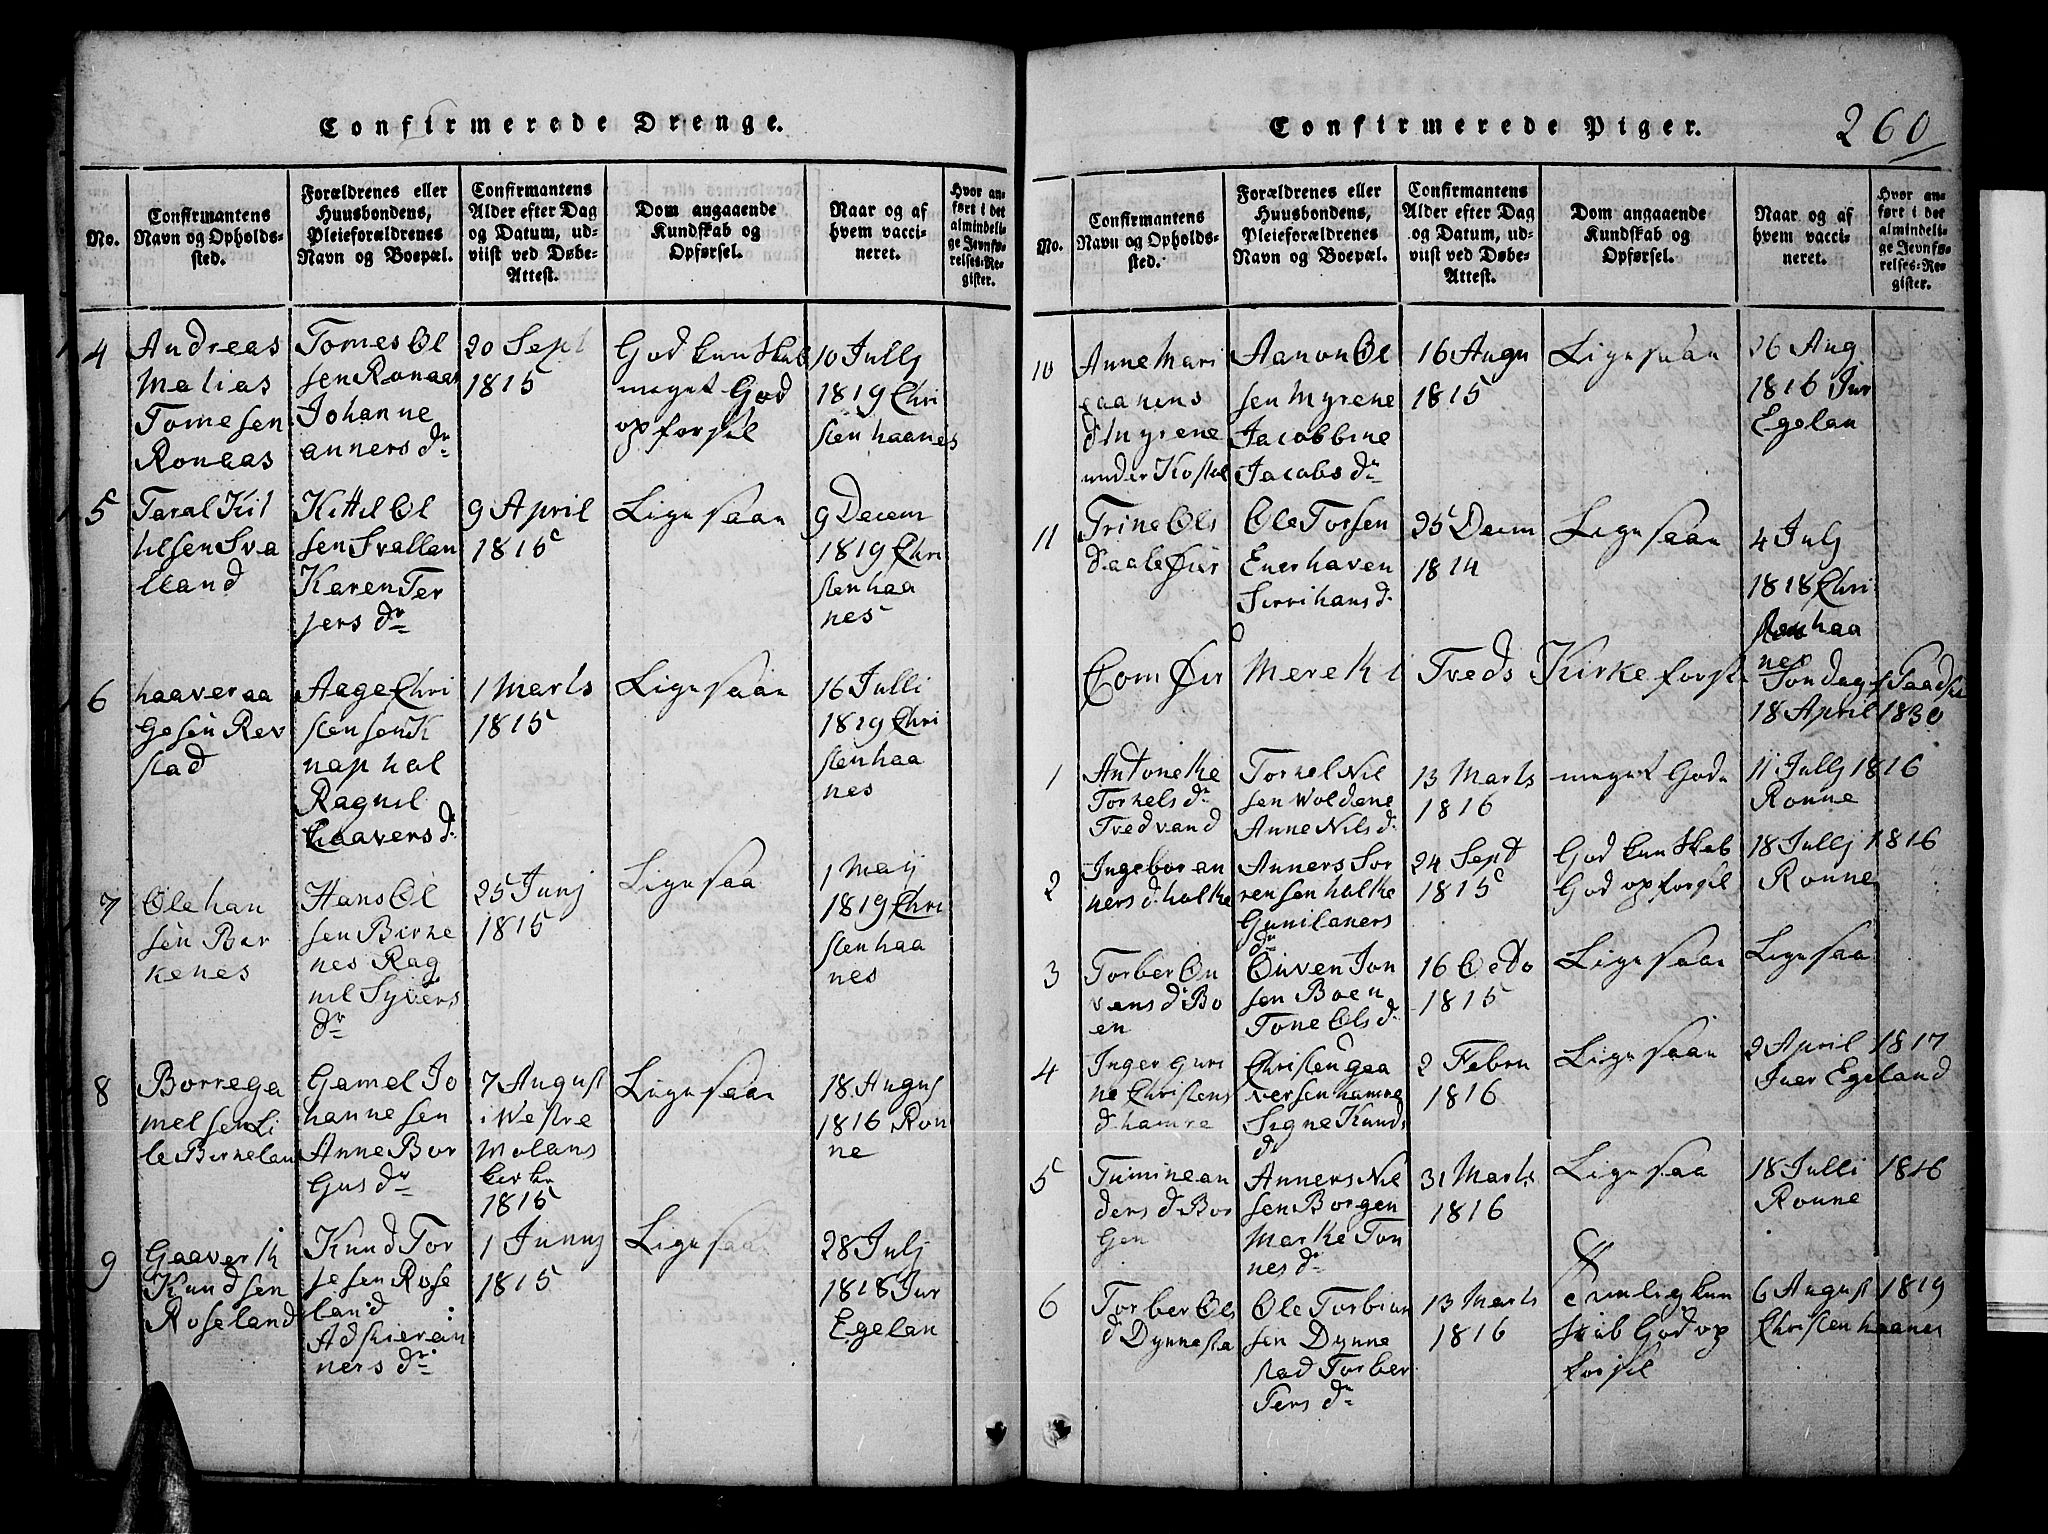 Confirmerede Drenge.
No.
Confirmantens
Navn og Opholds-
sted.
Forældrenes eller
Huusbondens,
Pleieforældrenes
Navn og Boepæl.
Confirmantens
Alder efter Dag
og Datum, ud-
viist ved Døbe-
Attest.
Dom angaaende
Kundskab og
Opførsel.
Naar og af
hvem vacci-
neret.
Hvor an-
ført i det
almindeli-
ge Jevnfø-
relses-Re-
gister.
4
Andreas
Matias
Tomesen
Ronaas
Tomes Ol
sen Ronaas
Johanne
anners dr
20 Sept
1815
God kunskab
meget God
opforsel
10 Jullj
1819 Chri
sten haanes
5
Taral Kit
tilsen Sva
lland
Kittil Ol
sen Svallan
Karen Ter
jers dr
9 April
1815
Lige saan
9 Decem
1819 Chri
sten haa
nes
6
haaver aa
Gesen Rev
stad
Aage Chri
stensen K
nap hol
Ragnil
haavers d.
1 Marts
1815
Lige saan
16 Julli
1819 Chri
sten haa
nes
7
Ole han
sen Ber
kenes
Hans Ol
sen Berke
nes Rag
nil Syvers
dr
25 Junj
1815
Lige saa
1 Maij
1819 Chri
sten haa
nes
8
Borre ga
melsen Li
le Birkelan
Gamel Jo
hannesen
Anne Bor
Gus dr
7 August
i Westre
Molans
kerke
1815
Lige saan
18 Augus
1816 Ron
ne
9
Gaaver K
Knudsen
Roseland
Knud Tor
jesen Rose
land
Adskieran
ners dr
1 Junnj
1815
Lige saa
28 Julj
1818 Jur
Egelan
Confirmerede Piger.
260
No.
Confirmantens
Navn og Opholds-
sted.
Forældrenes eller
Huusbondens,
Pleieforældrenes
Navn og Boepæl.
Confirmantens
Alder efter Dag
og Datum, ud-
viist ved Døbe-
Attest.
Dom angaaende
Kundskab og
Opførsel.
Naar og af
hvem vacci-
neret.
Hvor an-
ført i det
almindeli-
ge Jevnfø-
relses-Re-
gister.
10
Anne Mari
eaanens
d Myrene
under Kostøl
Aanon Ol
sen Myrene
Jacobbine
Jacobs dr
16 Augu
1815
Lige saan
26 Aug
1816 Jur
Egelan
11
Trine Ols
d aaleøier
Ole Torsen
Enerhaven
Sirri hans d.
25 Decem
1814
Lige saan
4 Julj
1818 Chri
sten haa
nes
Comfir Merek i Treds Kirke forst Søndag
18 April 1830
1
Antonette
Torkels dr
Tredvand
Torkel Nil
sen Woldene
Anne Nils d.
13 Marts
1816
meget Gode
11 Jullj 1816
Ronne
2
Ingebor an
ners d. holke
Anners Sor
rensen holke
Gunil aners
dr
24 Sept
1815
God kunskab
God opforsil
18 Jullj 1816
Ronne
3
Torber On
vens d Bo
en
Onven Jon
sen Boen
Tone Ols d.
16 Octo
1815
Lige saan
Lige saa
4
Inger gurs
ne Christens
d. hamre
Christen gaa
versen hamre
Signe Knud
d
2 Febru
1816
Lige saan
2 April 1817
Juer Egeland
5
Tuminean
ders d. Bor
gen
Anners Nil
sen Borgen
Marke Ton
nes dr
31 Marts
1816
Lige saa
18 Julli 1816
Ronne
6
Torber Ols
d Dynnesta
Ole Torbiun
sen Dynne
stad Torber
Ters dr
13 Marts
1816
Temlig kun
skab God op
forsil
6 August 1819
Christen haanes